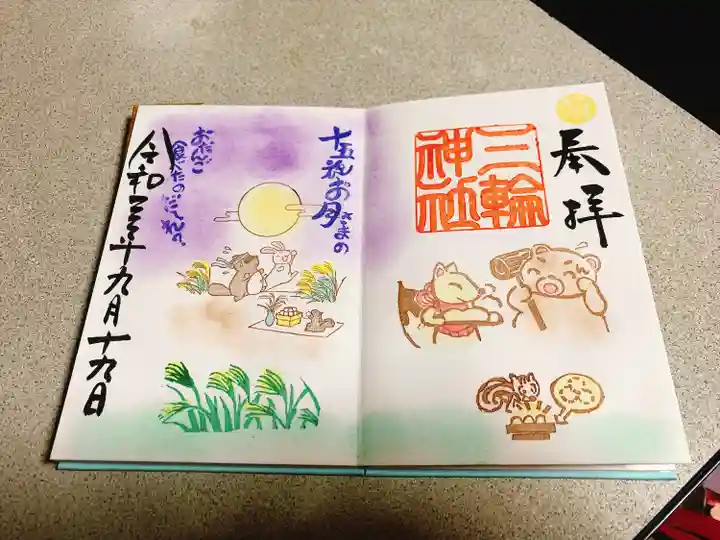 奉拝
三輪
神社
十五夜お月さまの
おだんご
食べたのだぁれ?
令和三年九月十九日